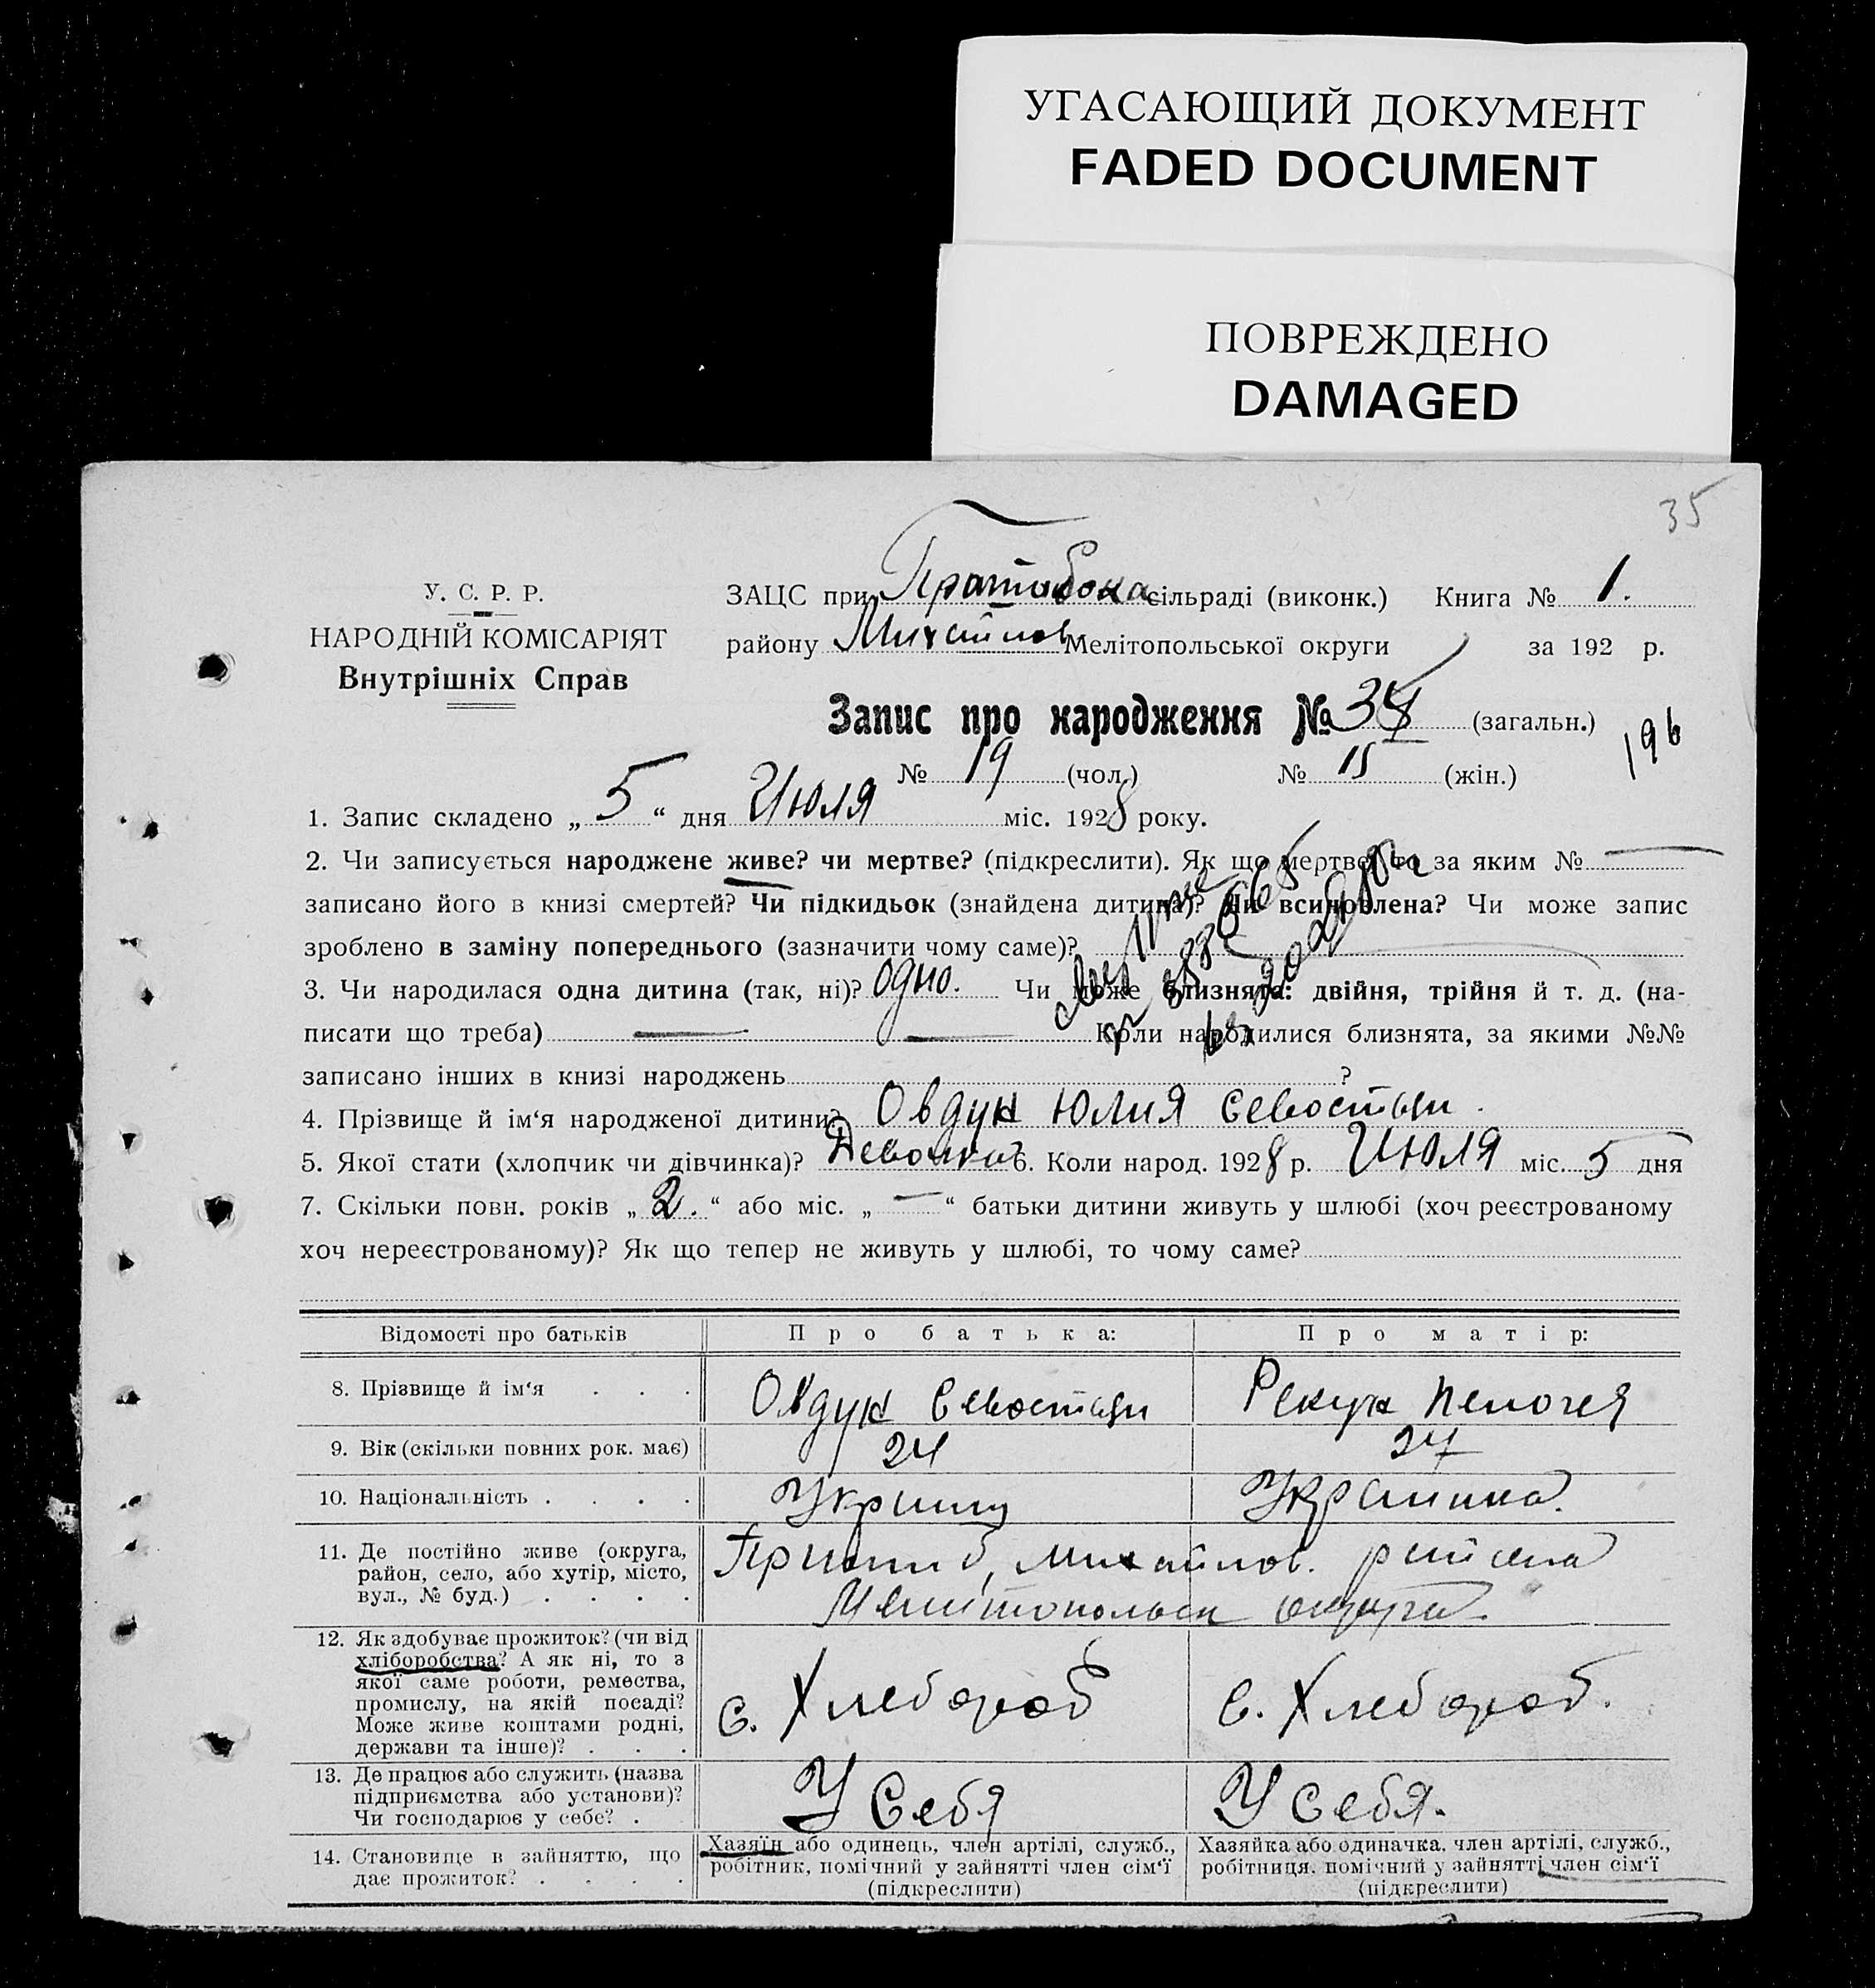 УГАСАЮЩИЙ ДОКУМЕНТ
FADED DOCUMENT
ПОВРЕЖДЕНО
DAMAGED
35
У. С. Р. Р.
НАРОДНІЙ КОМІСАРІЯТ
Внутрішніх Справ
ЗАЦС при сільраді (виконк.) Книга № 1.
району Михайлов Мелітопольської округи за 192 р.
Запис про народження № 34 (загальн.)
196
№ 19 (чол.) № 15 (жін.)
1. Запис складено „ 5 “ дня Июля міс. 1928 року.
2. Чи записується народжене живе? чи мертве? (підкреслити). Як що мертве, то за яким № —
записано його в книзі смертей? Чи підкидьок (знайдена дитина)? Чи всиновлена? Чи може запис
зроблено в заміну попереднього (зазначити чому саме)?
3. Чи народилася одна дитина (так, ні)? одно. Чи може близнята: двійня, трійня й т. д. (на-
писати що треба) — — Коли народилися близнята, за якими №№
записано інших в книзі народжень ?
4. Прізвище й ім‘я народженої дитини? Овдун Юлия Севостьян.
5. Якої стати (хлопчик чи дівчинка)? Девочка 6. Коли народ. 1928 р. Июля міс. 5 дня
7. Скільки повн. років „ 2. “ або міс. „ — “ батьки дитини живуть у шлюбі (хоч реєстрованому
хоч нереєстрованому)? Як що тепер не живуть у шлюбі, то чому саме?
Відомості про батьків Про батька: Про матір:
8. Прізвище й ім‘я . . . Овдун Севостьян
9. Вік (скільки повних рок. має) 24 24
10. Національність . . . . Украинка.
11. Де постійно живе (округа,
район, село, або хутір, місто,
вул., № буд.) . . . .
Михайлов.
Мелитопольск округа.
12. Як здобуває прожиток? (чи від
хліборобства? А як ні, то з
якої саме роботи, ремества,
промислу, на якій посаді?
Може живе коштами родні,
держави та інше)? . . .
с. Хлебороб с. Хлебороб.
13. Де працює або служить (назва
підприємства або установи)?
Чи господарює у себе? .
У Себя У Себя.
14. Становище в зайняттю, що
дає прожиток? . . . .
Хазяїн або одинець, член артілі, служб.,
робітник, помічний у зайнятті член сім‘ї
(підкреслити)
Хазяйка або одиначка, член артілі, служб.,
робітниця, помічний у зайнятті член сім‘ї
(підкреслити)